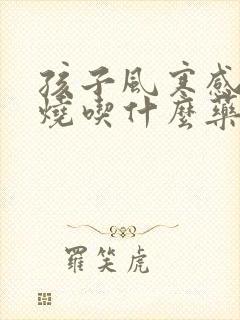 孩子風寒感
燒喫什麼藥
羅笑虎